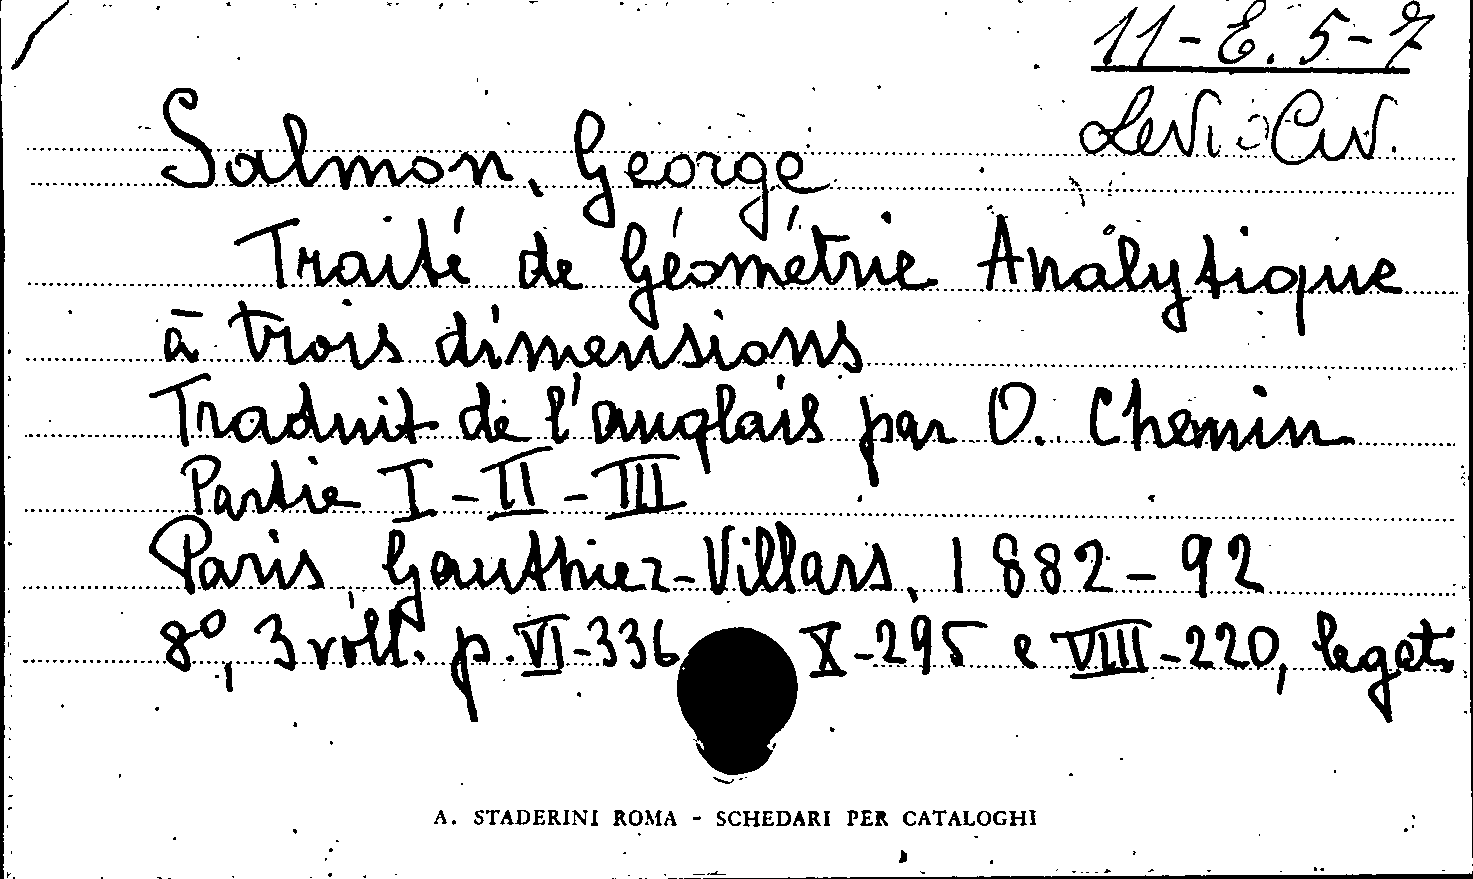 11-E.5-7
Levi Civ.
Salmon, George
Traité de Géométrie Analytique
à trois dimensions
Traduit de l'anglais par O. Chemin
Partie I-II-III
Paris Gauthier-Villars, 1882-92
8°, 3 voll. p. VI-336 X-295 e VIII-220, legat.
A. STADERINI ROMA - SCHEDARI PER CATALOGHI